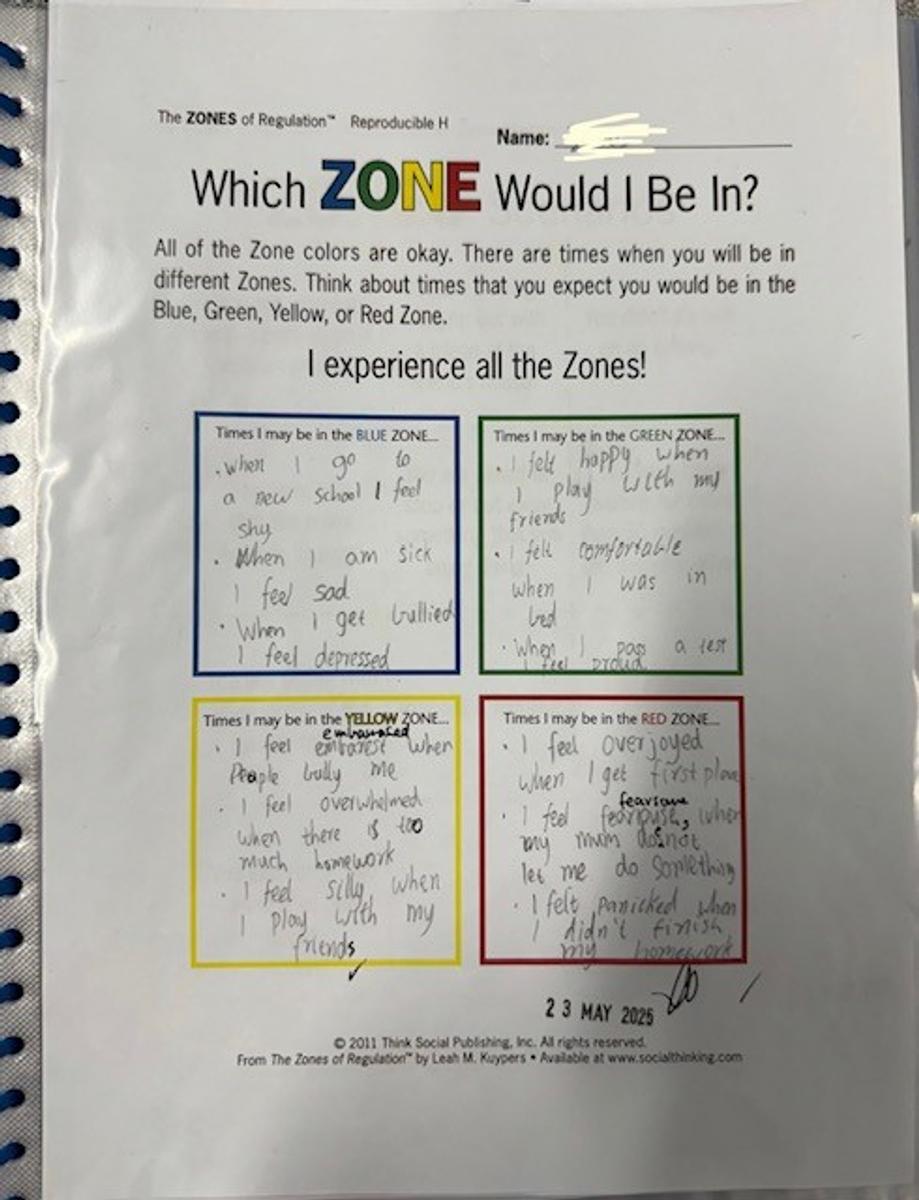 The ZONES of Regulation™ Reproducible H
Name:
Which ZONE Would I Be In?
All of the Zone colors are okay. There are times when you will be in
different Zones. Think about times that you expect you would be in the
Blue, Green, Yellow, or Red Zone.
I experience all the Zones!
Times I may be in the BLUE ZONE...
. When I go to
a new school I feel
shy
. When I am sick
I feel sad
. When I get bullied
I feel depressed
Times I may be in the GREEN ZONE...
. I felt happy when
I play with my
friends
. I felt comfortable
when I was in
bed
. When I pass a test
I feel proud
Times I may be in the YELLOW ZONE...
embarrassed
. I feel embarest when
People bully me
. I feel overwhelmed
when there is too
much homework
. I feel silly when
I play with my
friends
Times I may be in the RED ZONE...
. I feel overjoyed
when I get first place
fearsome
. I feel , when
my mum does not
let me do something
. I felt panicked when
I didn't finish
my homework
23 MAY 2025
© 2011 Think Social Publishing, Inc. All rights reserved.
From The Zones of Regulation™ by Leah M. Kuypers • Available at www.socialthinking.com